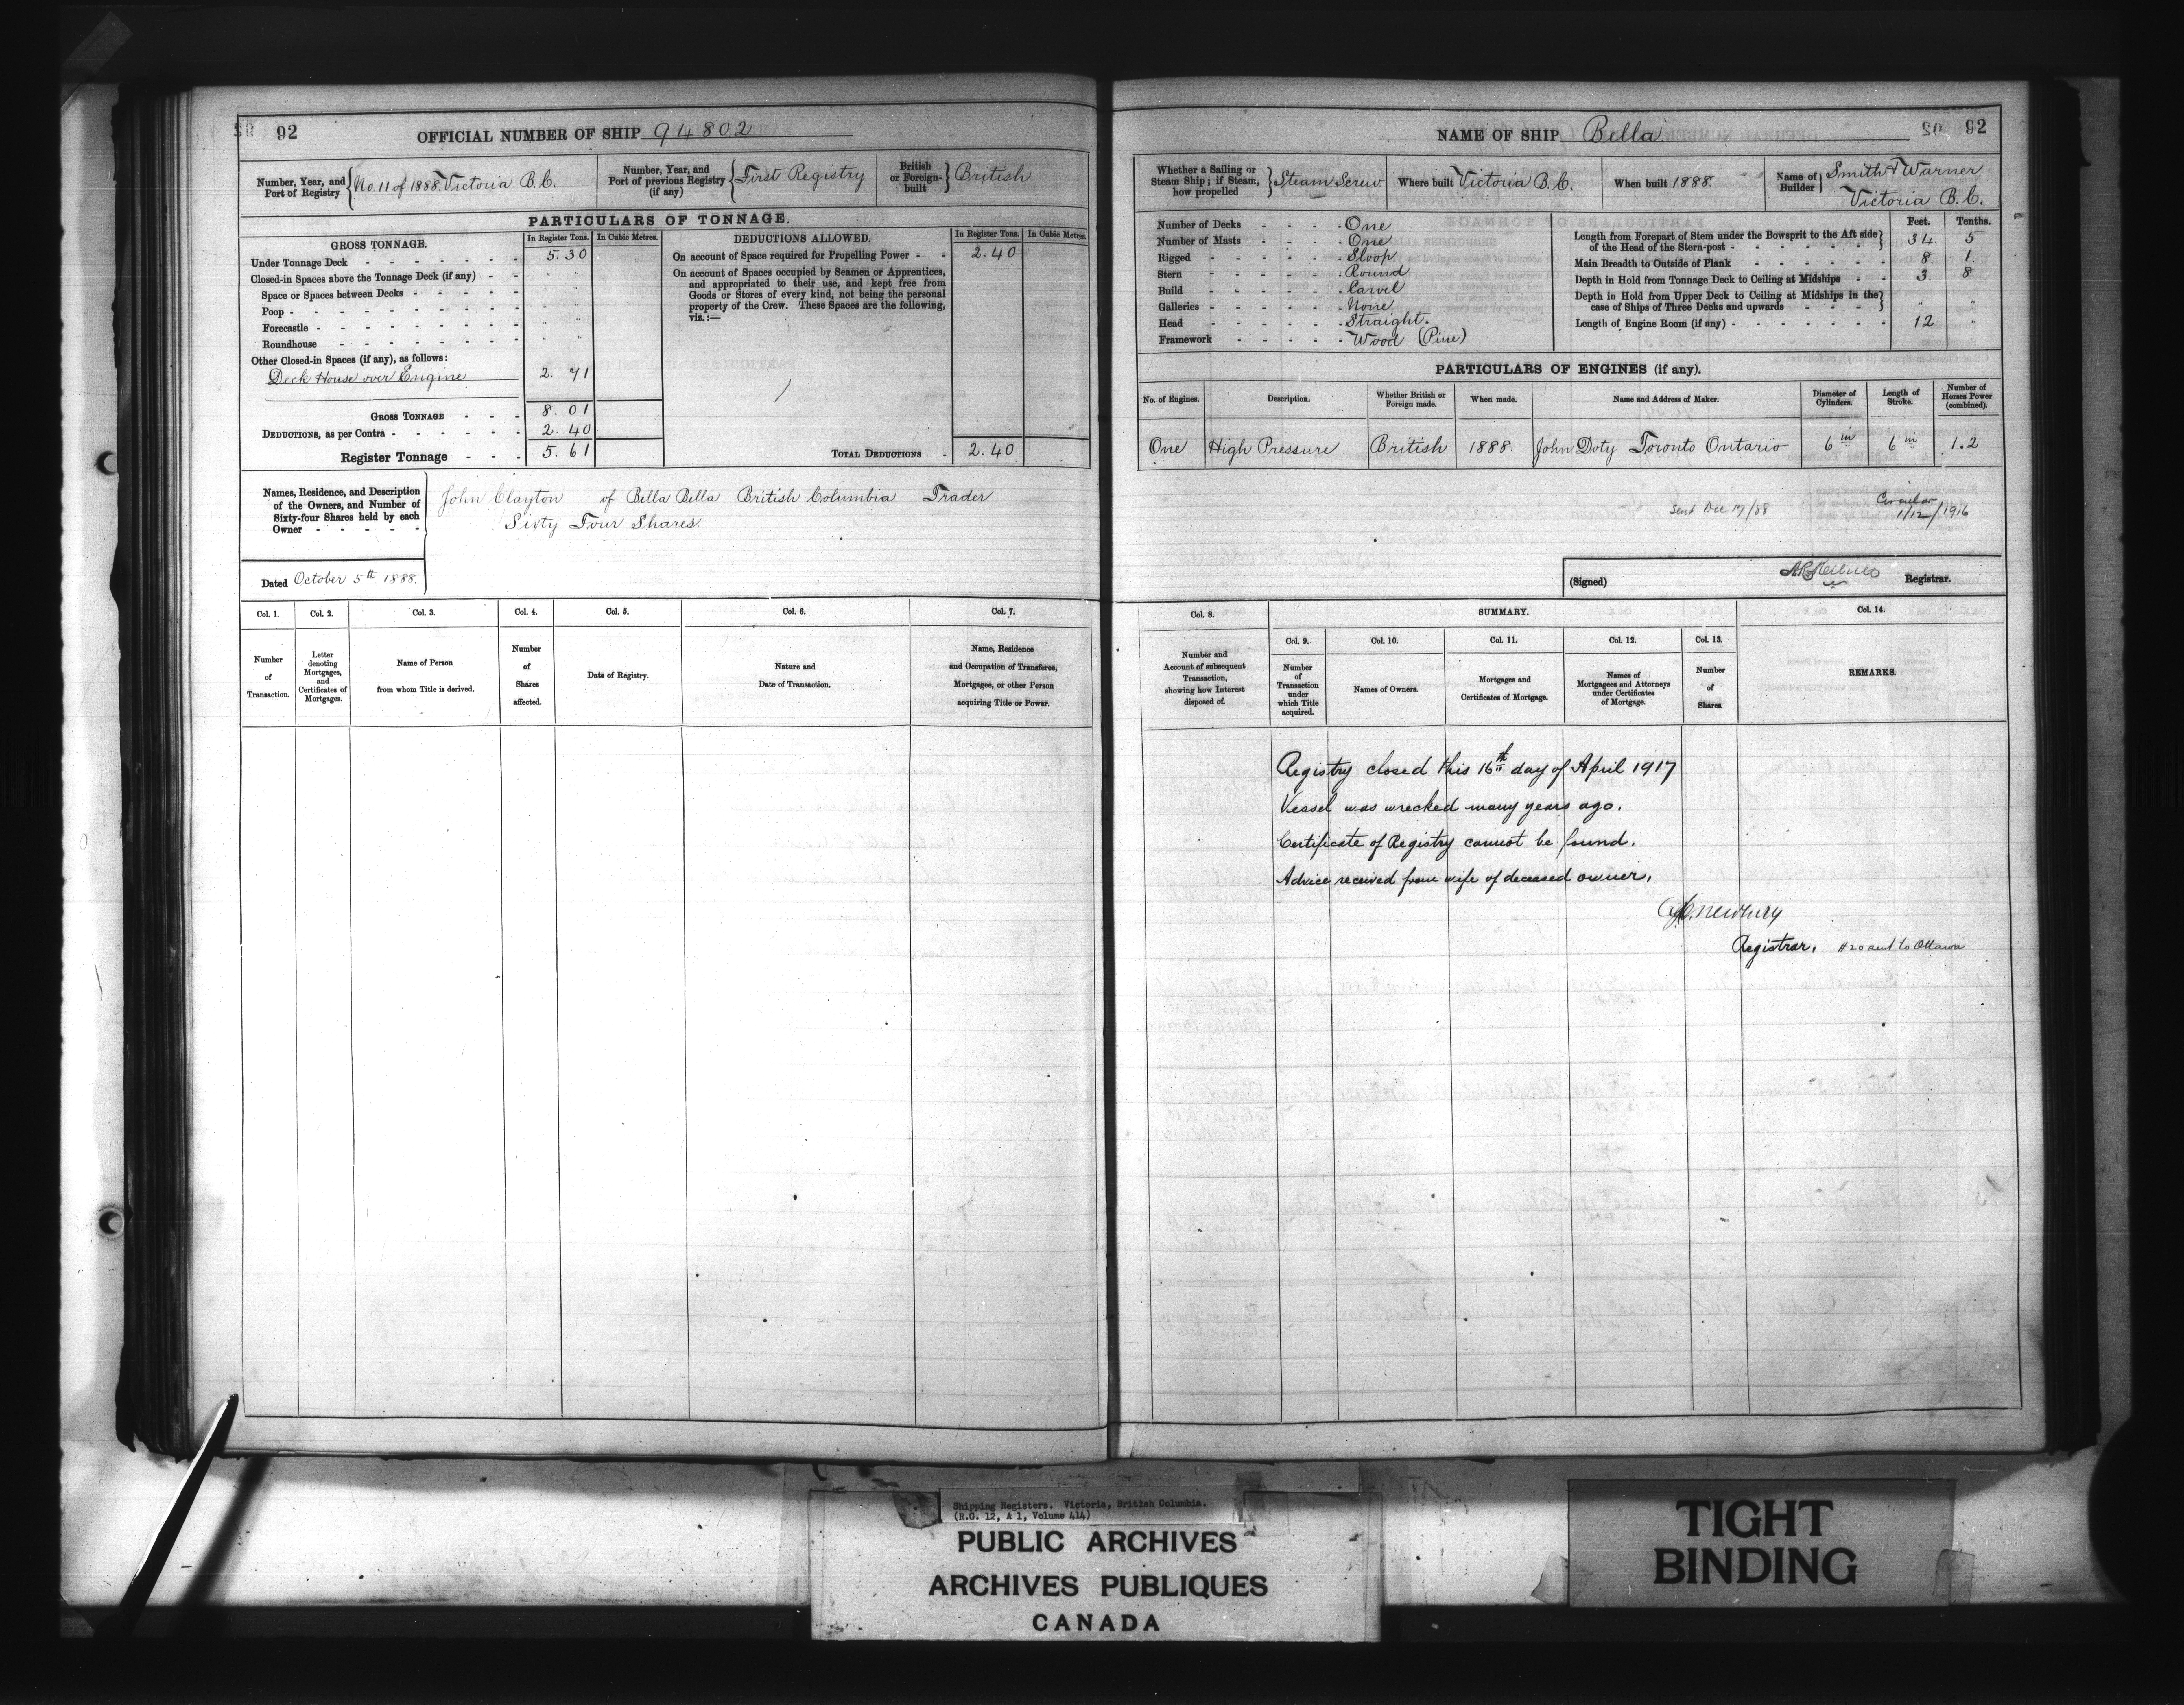 92
OFFICIAL NUMBER OF SHIP 94802
Number, Year, and Port of Registry No. 11 of 1888. Victoria B.C.
Number, Year, and Port of previous Registry (if any) First Registry
British or Foreign-built British
PARTICULARS OF TONNAGE.
GROSS TONNAGE. In Register Tons. In Cubic Metres.
Under Tonnage Deck 5.30
Closed-in Spaces above the Tonnage Deck (if any) "
Space or Spaces between Decks "
Poop "
Forecastle "
Roundhouse "
Other Closed-in Spaces (if any), as follows:
Deck House over Engine 2.71
GROSS TONNAGE 8.01
DEDUCTIONS, as per Contra 2.40
Register Tonnage 5.61
DEDUCTIONS ALLOWED. In Register Tons. In Cubic Metres.
On account of Space required for Propelling Power 2.40
On account of Spaces occupied by Seamen or Apprentices,
and appropriated to their use, and kept free from
Goods or Stores of every kind, not being the personal
property of the Crew. These Spaces are the following,
viz.:—
TOTAL DEDUCTIONS 2.40
Names, Residence, and Description
of the Owners, and Number of
Sixty-four Shares held by each
Owner
John Clayton of Bella Bella British Columbia Trader
Sixty Four Shares
Dated October 5th 1888.
Col. 1. Col. 2. Col. 3. Col. 4. Col. 5. Col. 6. Col. 7.
Number of Transaction.
Letter denoting Mortgages, and Certificates of Mortgages.
Name of Person from whom Title is derived.
Number of Shares affected.
Date of Registry.
Nature and Date of Transaction.
Name, Residence and Occupation of Transferee, Mortgagee, or other Person acquiring Title or Power.
NAME OF SHIP Bella
92
Whether a Sailing or Steam Ship; if Steam, how propelled Steam Screw
Where built Victoria B.C.
When built 1888.
Name of Builder Smith & Warner
Victoria B.C.
Number of Decks One
Number of Masts One
Rigged Sloop
Stern Round
Build Carvel
Galleries None
Head Straight.
Framework Wood (Pine)
Feet. Tenths.
Length from Forepart of Stem under the Bowsprit to the Aft side
of the Head of the Stern-post 34. 5
Main Breadth to Outside of Plank 8. 1
Depth in Hold from Tonnage Deck to Ceiling at Midships 3. 8
Depth in Hold from Upper Deck to Ceiling at Midships in the
case of Ships of Three Decks and upwards " "
Length of Engine Room (if any) 12 "
PARTICULARS OF ENGINES (if any).
No. of Engines. Description. Whether British or Foreign made. When made. Name and Address of Maker. Diameter of Cylinders. Length of Stroke. Number of Horses Power (combined).
One High Pressure British 1888. John Doty Toronto Ontario 6 in 6 in 1.2
Sent Dec 17/88
Circular
1/12/1916
(Signed) Registrar.
Col. 8. SUMMARY. Col. 14.
Col. 9. Col. 10. Col. 11. Col. 12. Col. 13.
Number and Account of subsequent Transaction, showing how Interest disposed of.
Number of Transaction under which Title acquired.
Names of Owners.
Mortgages and Certificates of Mortgage.
Names of Mortgagees and Attorneys under Certificates of Mortgage.
Number of Shares.
REMARKS.
Registry closed this 16th day of April 1917
Vessel was wrecked many years ago.
Certificate of Registry cannot be found.
Advice received from wife of deceased owner.
Newbury
Registrar. #20 sent to Ottawa
Shipping Registers. Victoria, British Columbia.
(R.G. 12, A 1, Volume 414)
PUBLIC ARCHIVES
ARCHIVES PUBLIQUES
CANADA
TIGHT
BINDING